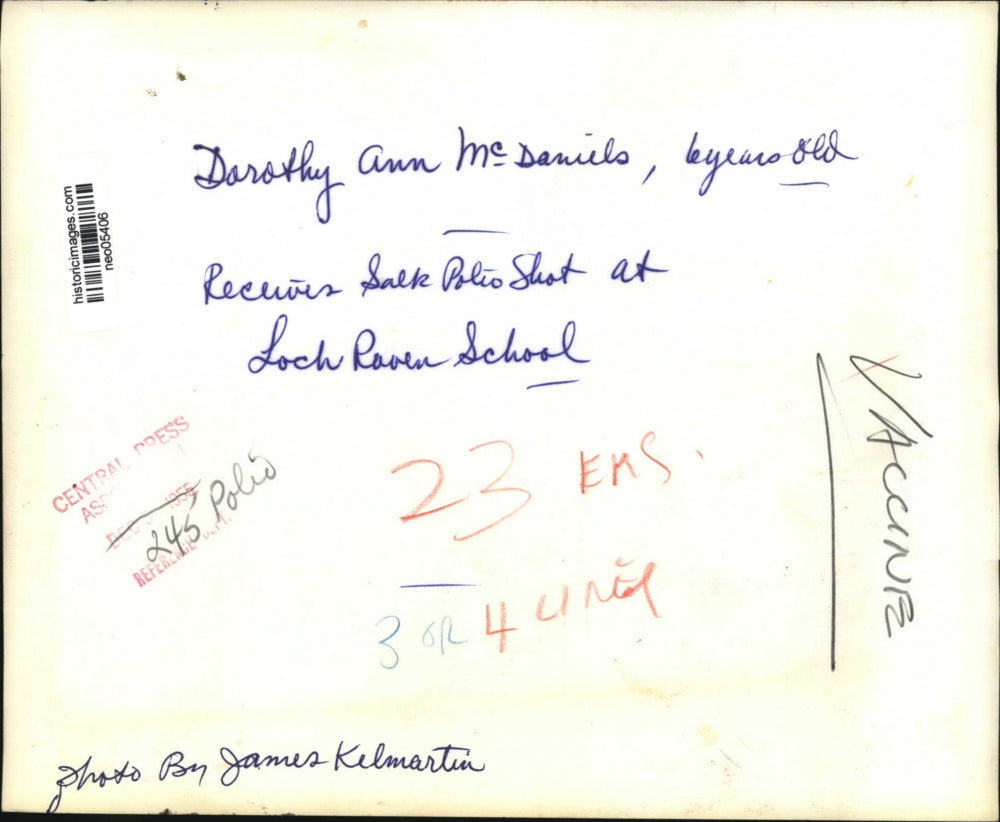 Dorothy Ann McDaniels, 6 years old
Receives Salk Polio Shot at
Loch Raven School
historicimages.com
neo05406
CENTRAL PRESS
245 Polio
REFERENCE DEPT.
23 EMS.
3 OR 4 LINES
VACCINE
Photo By James Kelmartin